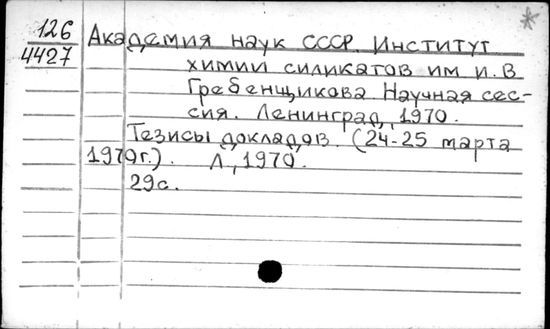 126
4427
Академия наук СССР. Институт
химии силикатов им И.В
Гребенщикова Научная сес-
сия. Ленинград, 1970.
Тезисы докладов. (24-25 марта
1970г.). Л., 1970.
29с.